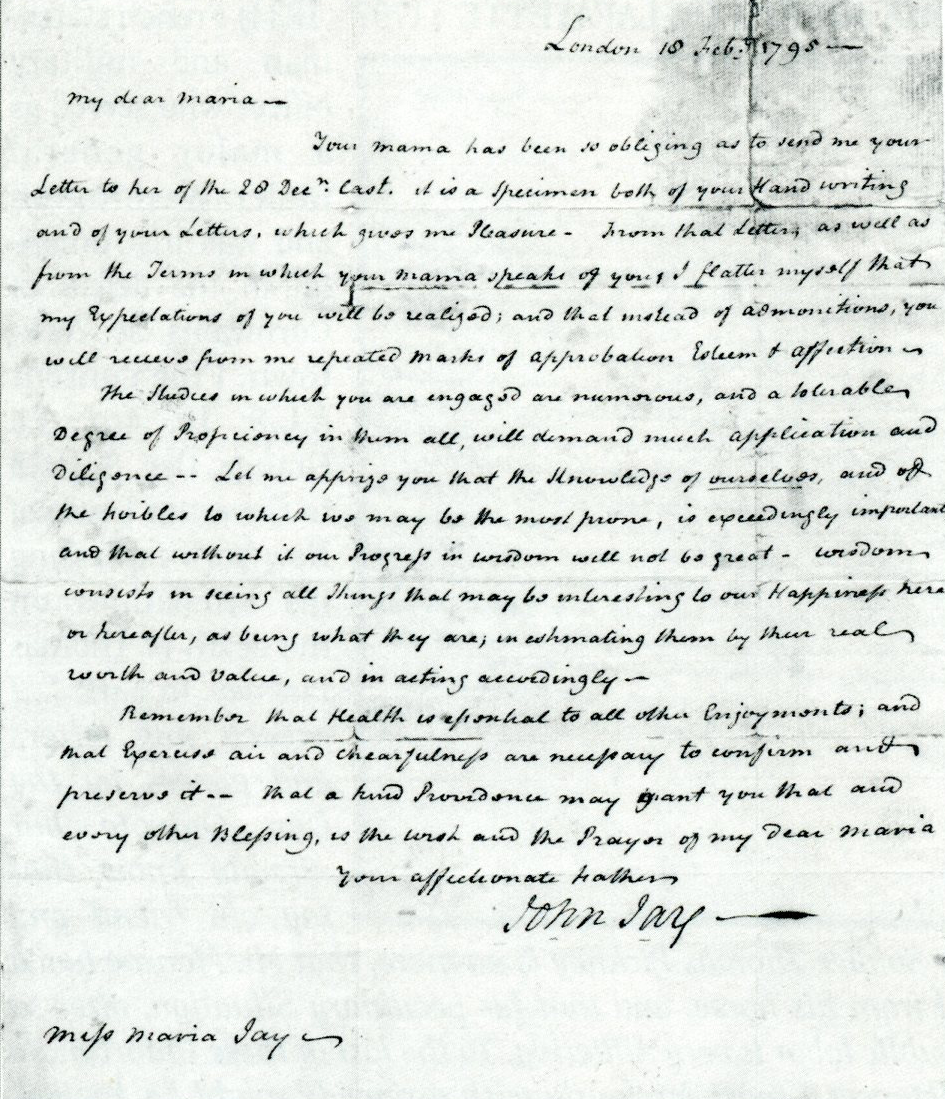 London 18 Feb.ʸ 1795 —
My dear Maria —
Your Mama has been so obliging as to send me your
Letter to her of the 28 Decʳ. last. it is a Specimen both of your Hand writing
and of your Letters, which gives me Pleasure - From that Letter, as well as
from the Terms in which your Mama speaks of you, I flatter myself that
my Expectations of you will be realized; and that instead of admonitions, you
will recieve from me repeated marks of approbation Esteem & affection —
The Studies in which you are engaged are numerous, and a tolerable
Degree of Proficiency in them all, will demand much application and
Diligence -- Let me apprize you that the Knowledge of ourselves, and of
the Foibles to which we may be the most prone, is exceedingly important
and that without it our Progress in wisdom will not be great - wisdom
consists in seeing all Things that may be interesting to our Happiness here
or hereafter, as being what they are; in estimating them by their real
worth and value, and in acting accordingly —
Remember that Health is essential to all other Enjoyments; and
that Exercise air and chearfulness are necessary to confirm and
preserve it -- that a kind Providence may grant you that and
every other Blessing, is the wish and the Prayer of my Dear Maria
Your affectionate Father
John Jay —
Miss Maria Jay —